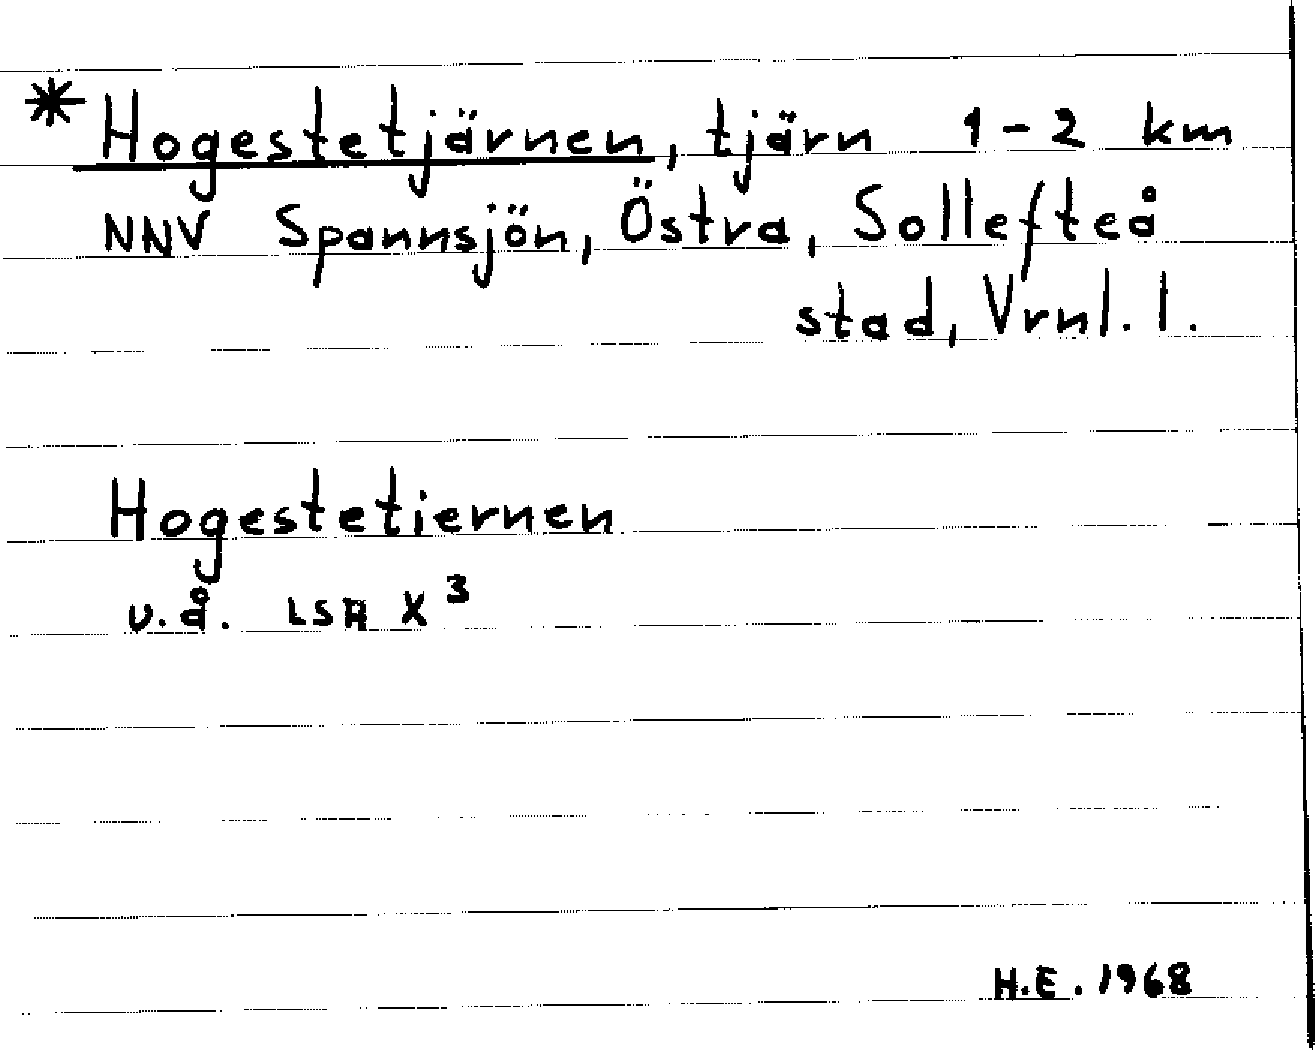 * Hogestetjärnen, tjärn 1-2 km
NNV Spannsjön, Östra, Sollefteå
stad, Vrnl. l.
Hogestetiernen
u.å. LSA X³
H.E. 1968